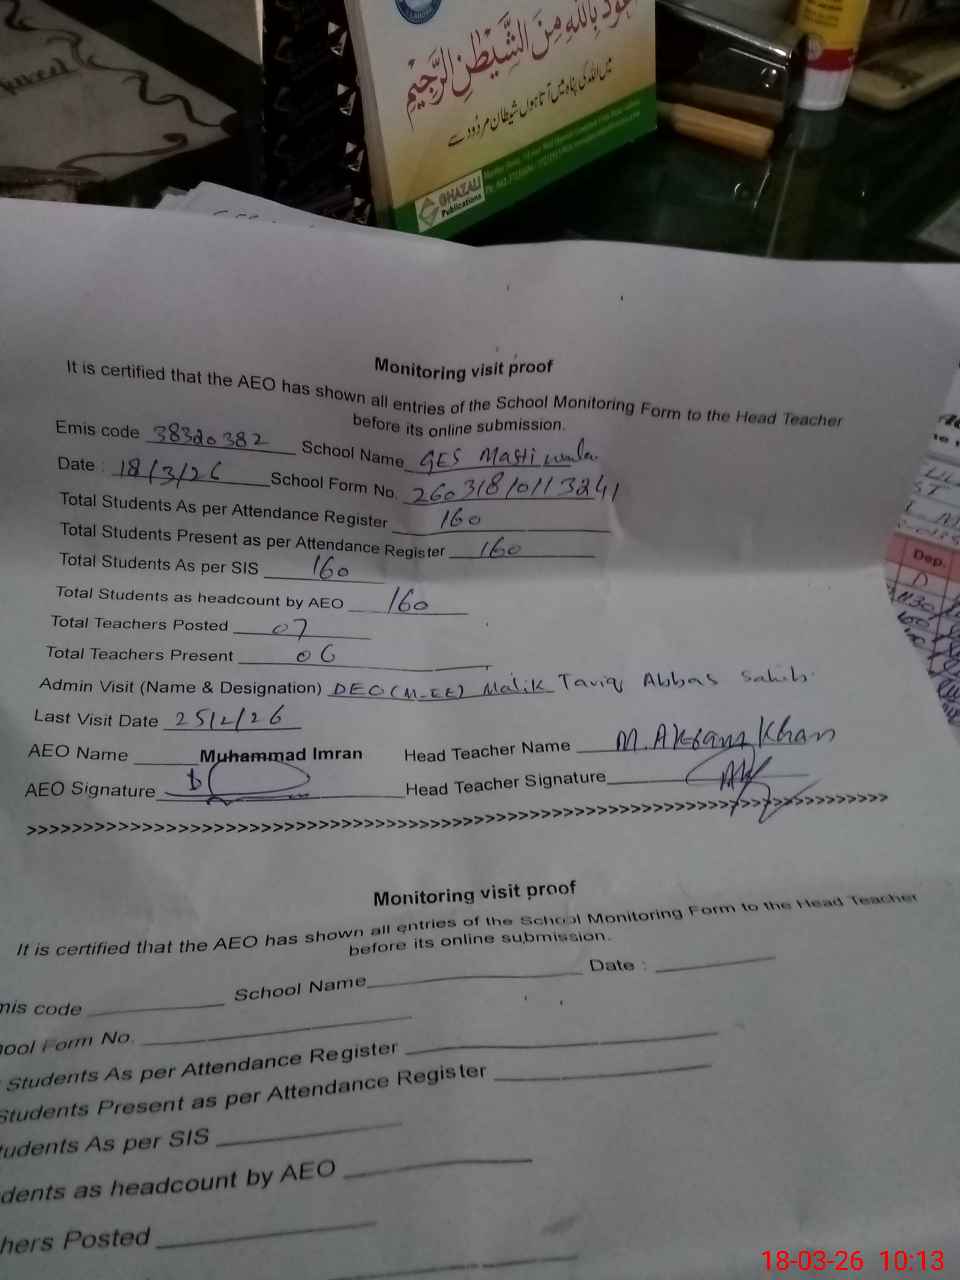 أعوذ بالله من الشيطن الرجيم
میں اللہ کی پناہ میں آتا ہوں شیطان مردود سے
GHAZALI
Publications
Monitoring visit proof
It is certified that the AEO has shown all entries of the School Monitoring Form to the Head Teacher
before its online submission.
Emis code 38320382 School Name GES Mastiwala
Date : 18/3/26 School Form No. 26031810113241
Total Students As per Attendance Register 160
Total Students Present as per Attendance Register 160
Total Students As per SIS 160
Total Students as headcount by AEO 160
Total Teachers Posted 07
Total Teachers Present 06
Admin Visit (Name & Designation) DEO (M-EE) Malik Tariq Abbas Sahib.
Last Visit Date 25/2/26
AEO Name Muhammad Imran Head Teacher Name M. Khan
AEO Signature Head Teacher Signature
>>>>>>>>>>>>>>>>>>>>>>>>>>>>>>>>>>>>>>>>>>>>>>>>>>>>>>>>>>>>>>>>>>>>>>>>>>
Monitoring visit proof
It is certified that the AEO has shown all entries of the School Monitoring Form to the Head Teacher
before its online submission.
mis code School Name Date :
ool Form No.
Students As per Attendance Register
Students Present as per Attendance Register
tudents As per SIS
dents as headcount by AEO
hers Posted
Dep.
D
1130
160
18-03-26 10:13